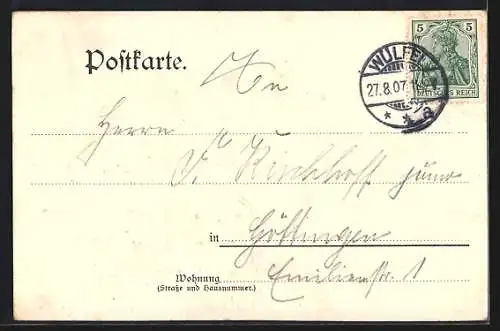 Postkarte.
5 5
DEUTSCHES REICH
WÜLFEL
27.8.07.
* * a
An
Herrn
Kirchhoff junior
in Göttingen
Wohnung Emilienstr. 1
(Straße und Hausnummer.)